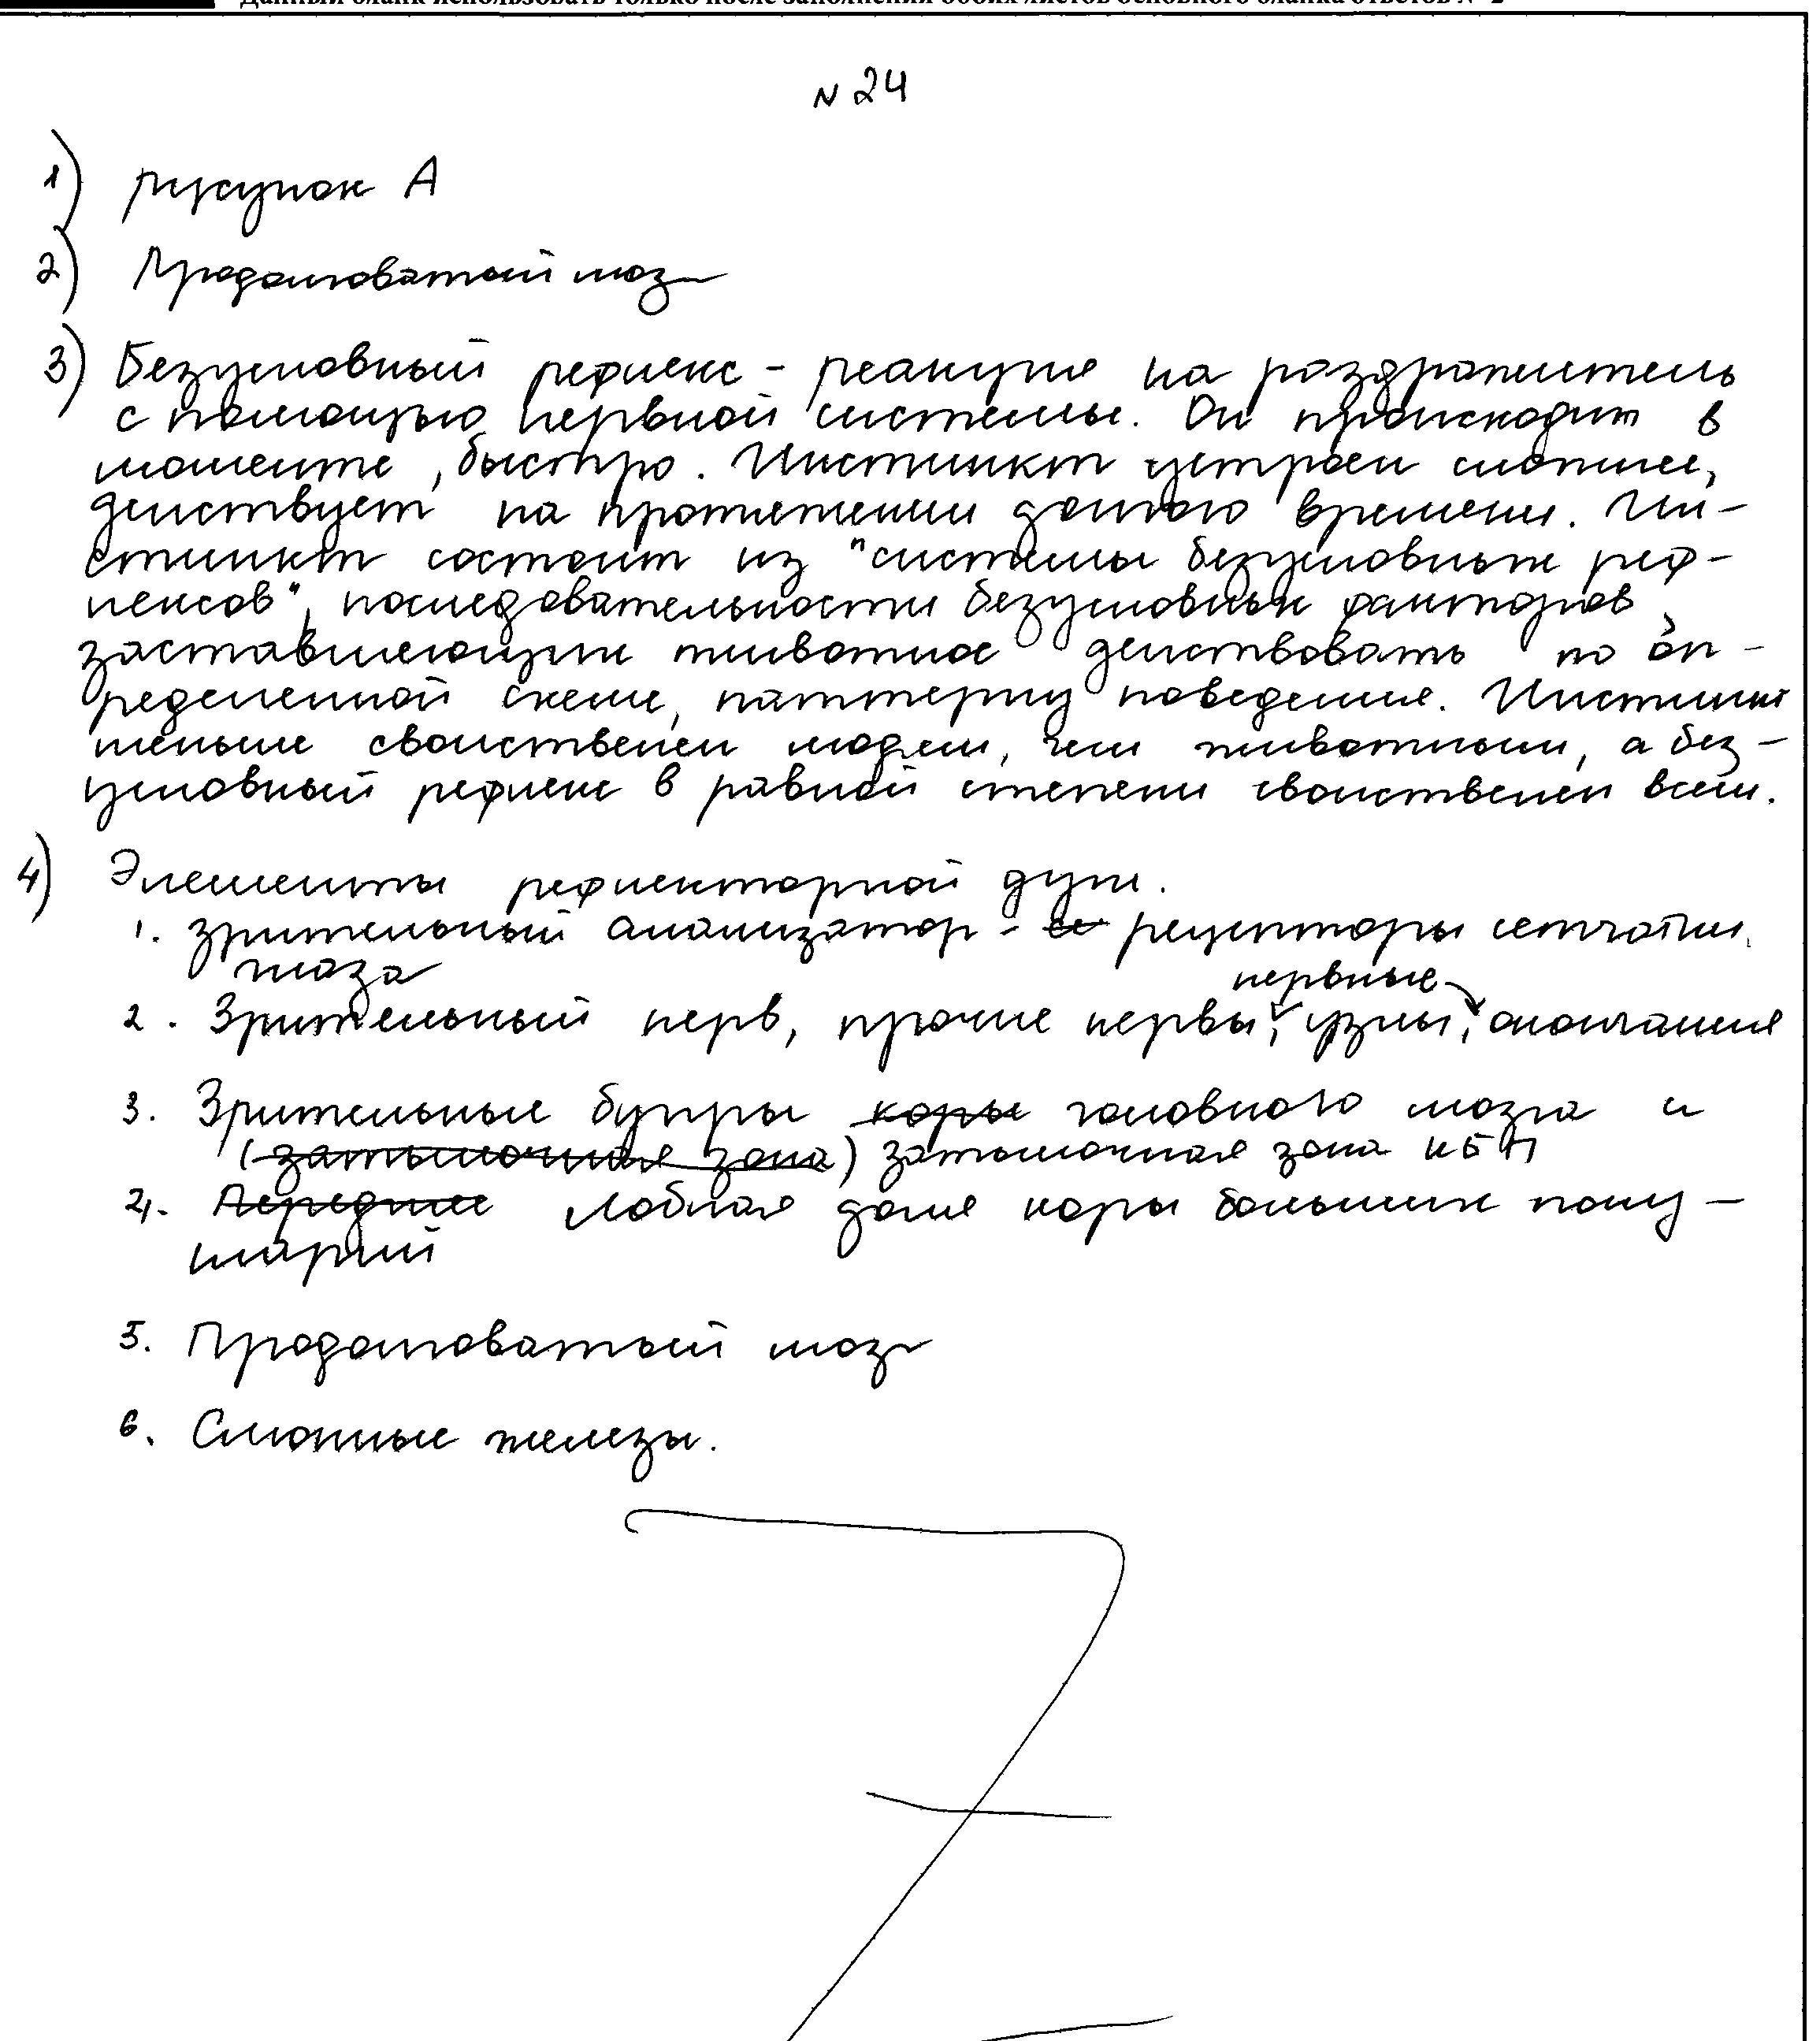 Данный бланк использовать только после заполнения обоих листов основного бланка ответов № 2
N 24
1) рисунок А
2) Продолговатый мозг
3) Безусловный рефлекс - реакция на раздражитель
с помощью нервной системы. Он происходит в
моменте, быстро. Инстинкт устроен сложнее,
действует на протяжении долгого времени. Ин-
стинкт состоит из "системы безусловных реф-
лексов", последовательности безусловных факторов,
заставляющих животное действовать по оп-
ределенной схеме, паттерну поведения. Инстинкт
меньше свойственен людям, чем животным, а без-
условный рефлекс в равной степени свойственен всем.
4) Элементы рефлекторной дуги.
1. зрительный анализатор - рецепторы сетчатки
глаза
нервные
2. Зрительный нерв, прочие нервы, узлы, окончания
3. Зрительные бугры коры головного мозга и
(затылочная зона) затылочная зона КБП
4. Переднее Лобная доля коры больших полу-
шарий
5. Продолговатый мозг
6. Слюнные железы.